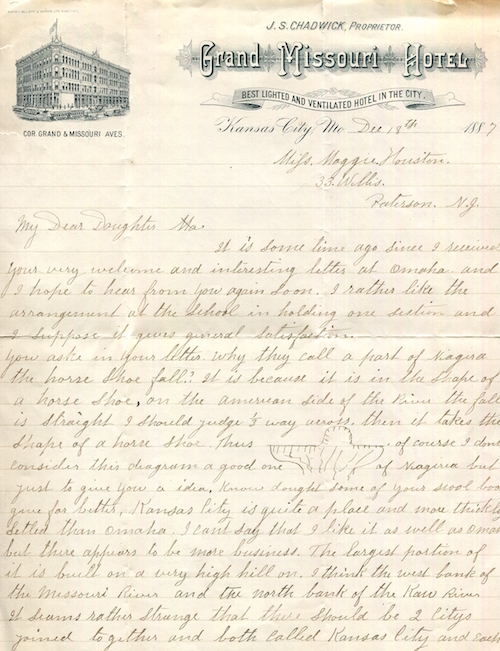 J. S. CHADWICK, PROPRIETOR.
Grand Missouri Hotel
BEST LIGHTED AND VENTILATED HOTEL IN THE CITY.
COR GRAND & MISSOURI AVES.
Kansas City, Mo Dec 18th 1887
Miss. Maggie Houston.
33 Willis.
Paterson. N.J.
My Dear Daughter
It is some time ago since I received
your very welcome and interesting letter at Omaha and
I hope to hear from you again soon. I rather like the
arrangement at the School in holding one section and
I suppose it gives general satisfaction.
You aske in your letter why they call a part of Nagera
the horse Shoe fall? It is because it is in the Shape of
a horse Shoe, on the american side of the River the fall
is straight I should judge 1/3 way across. then it takes the
Shape of a horse Shoe. Thus of course I dont
consider this deagram a good one of Nageria but
just to give you a idea. Know dought some of your scool books
give far better. Kansas City is quite a place and more thickly
setled than Omaha. I cant say that I like it as well as Omaha
but there appears to be more business. The Largest portion of
it is built on a very high hill on. I think the west bank of
the Missouri River and the north bank of the Kaw River
it seams rather strange that there should be 2 citys
joined to gether and both called Kansas City and each